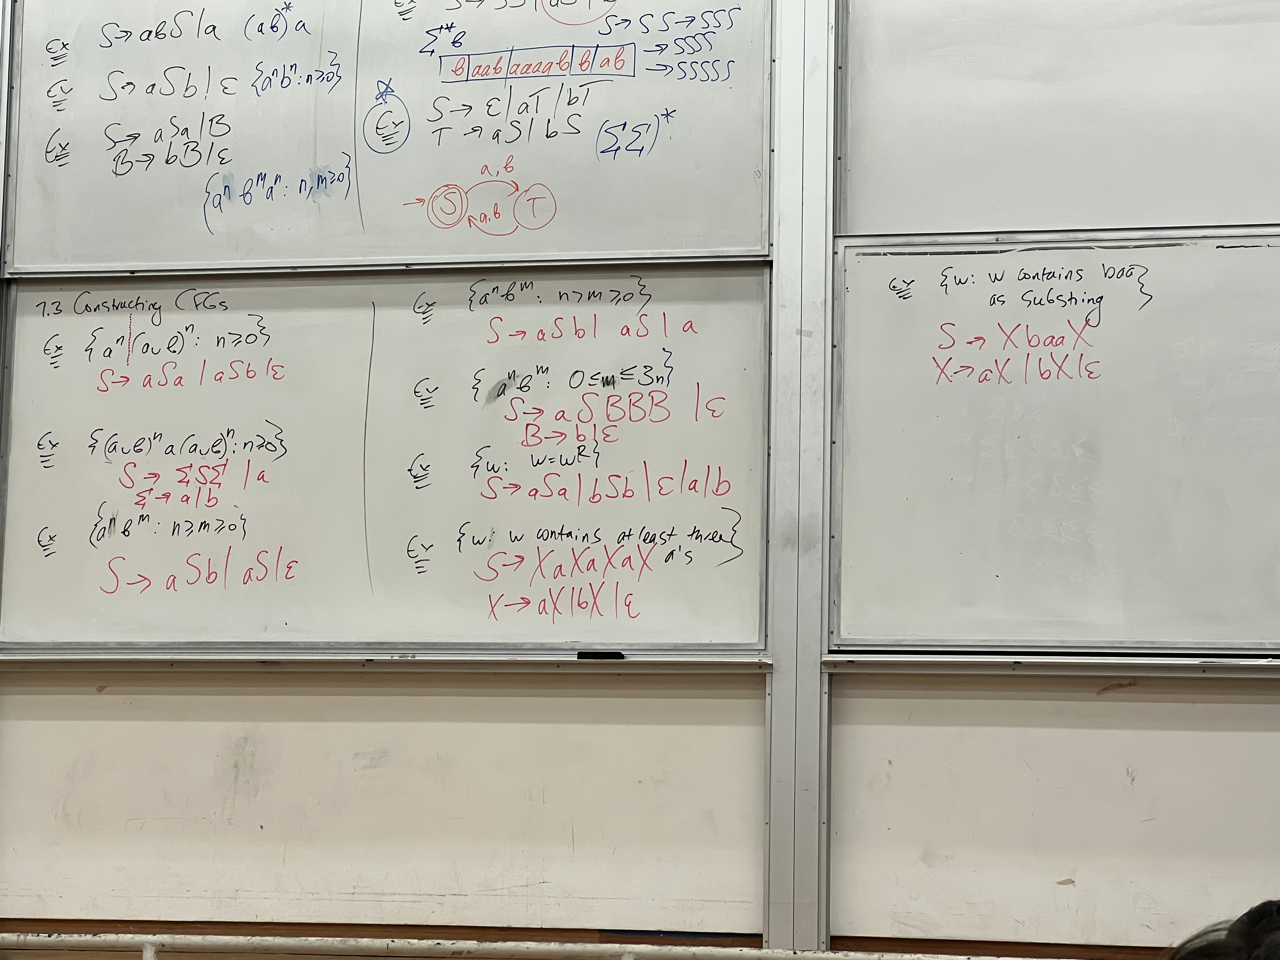 Ex S → abS | a (ab)*a
Ex S → aSb | ε {aⁿbⁿ: n≥0}
Ex S → aSa | B
B → bB | ε
{aⁿbᵐaⁿ: n, m≥0}
Ex
S → SS → SSS
Σ*b → SSS
b | aab | aaaab | b | ab → SSSSS
Ex S → ε | aT | bT
T → aS | bS (ΣΣ)*
a, b
→ S T
a,b
7.3 Constructing CFGs
Ex {aⁿ(a∪b)ⁿ: n≥0}
S → aSa | aSb | ε
Ex {(a∪b)ⁿa(a∪b)ⁿ: n≥0}
S → ΣSΣ | a
Σ → a | b
Ex {aⁿbᵐ: n≥m≥0}
S → aSb | aS | ε
Ex {aⁿbᵐ: n>m≥0}
S → aSb | aS | a
Ex {aⁿbᵐ: 0≤m≤3n}
S → aSBBB | ε
B → b | ε
Ex {w: w=wᴿ}
S → aSa | bSb | ε | a | b
Ex {w: w contains at least three a's}
S → XaXaXaX
X → aX | bX | ε
Ex {w: w contains baa
as substring}
S → XbaaX
X → aX | bX | ε